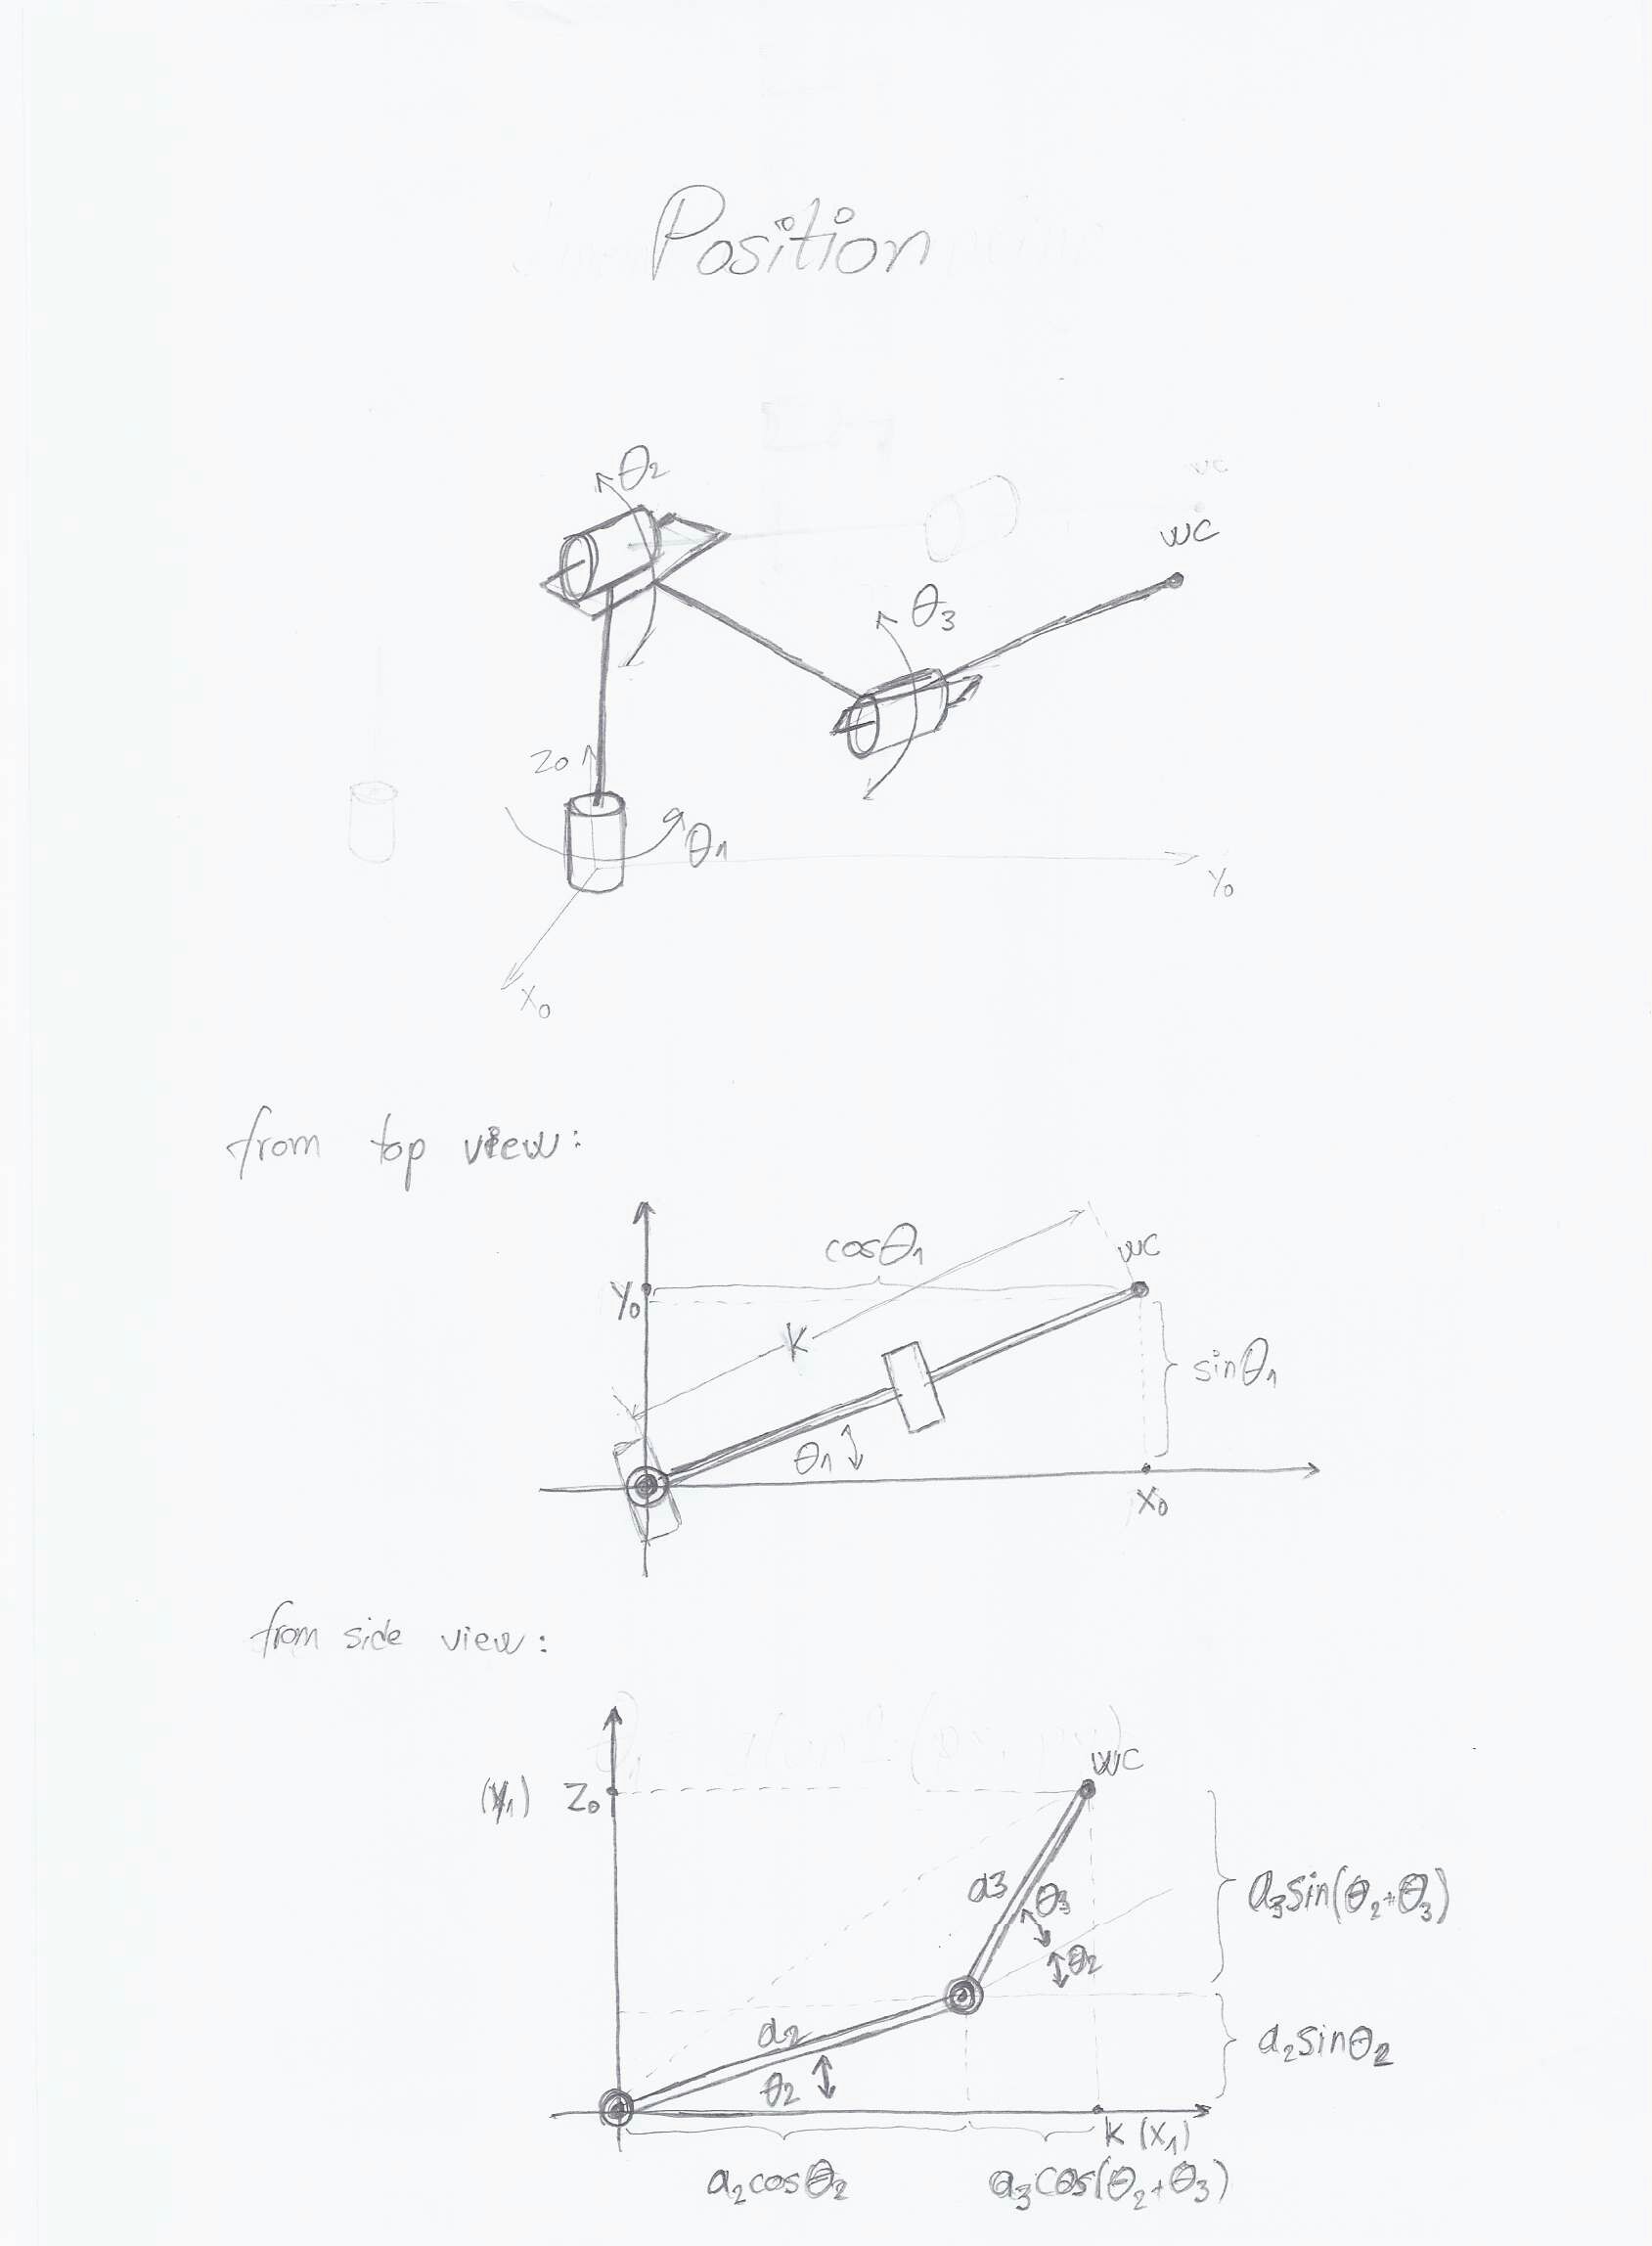 Position
θ2
wc
θ3
z0
θ1
y0
x0
from top view:
cosθ1
wc
y0
k
sinθ1
θ1
x0
from side view:
wc
(y1) z0
a3
θ3
a3sin(θ2+θ3)
θ2
a2
a2sinθ2
θ2
k (x1)
a2cosθ2
a3cos(θ2+θ3)